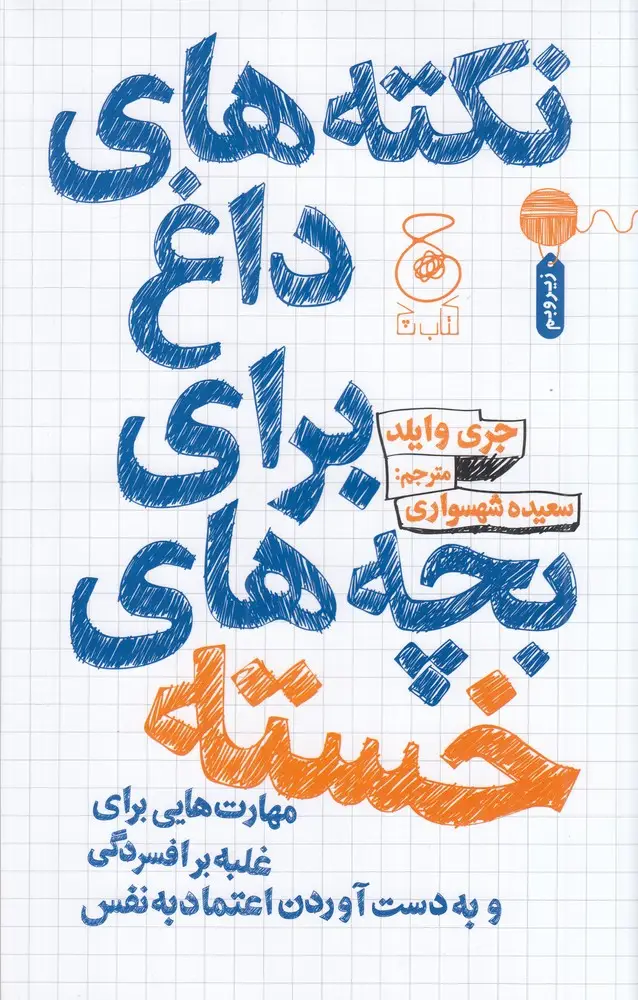 نکته‌های
داغ
برای
بچه‌های
خسته
زیر و بم
کتاب چ
جری وایلد
مترجم:
سعیده شهسواری
مهارت‌هایی برای
غلبه بر افسردگی
و به دست آوردن اعتماد به نفس